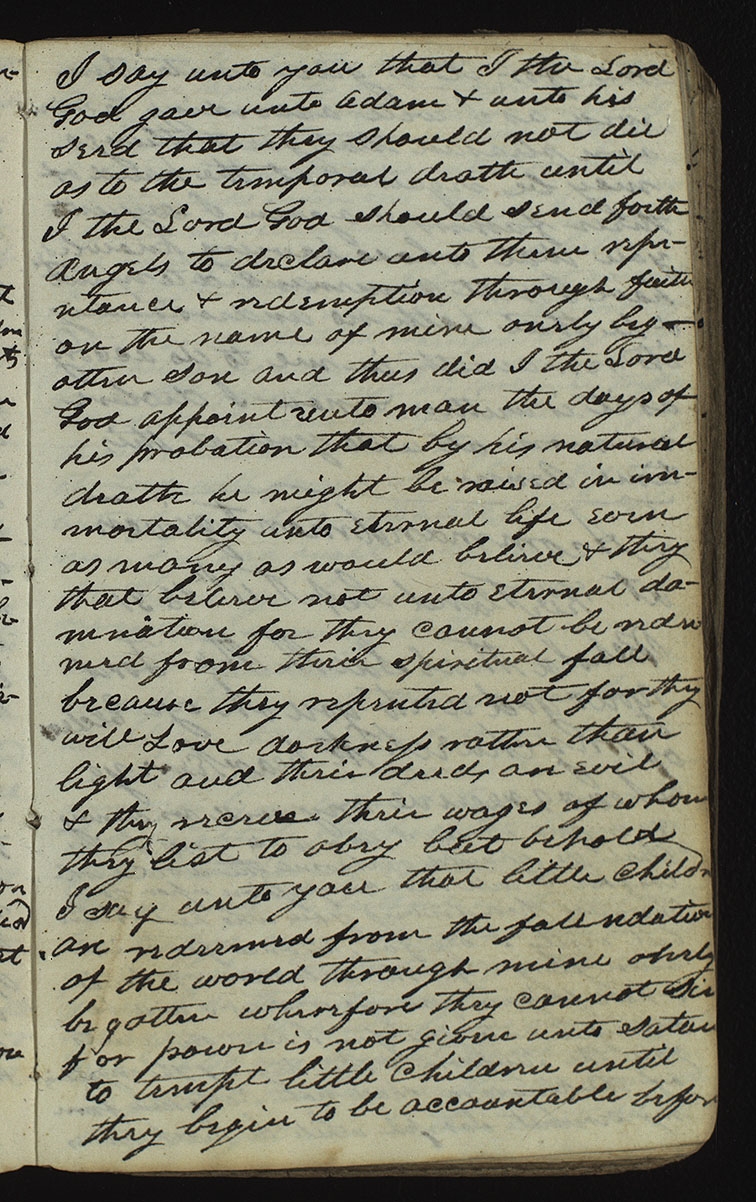 I say unto you that I the Lord
God gave unto Adam & unto his
seed that they should not die
as to the temporal death until
I the Lord God should send forth
Angels to declare unto them repe-
ntance & redemption through faith
on the name of mine onely beg-
otten Son and thus did I the Lord
God appoint unto man the days of
his probation that by his natural
death he might be raised in im-
mortality unto Eternal life even
as many as would believe & they
that believe not unto Eternal da-
mnation for they cannot be redee
med from their spiritual fall
because they repented not for they
will Love darkness rather than
light and their deeds are evil
& they receive their wages of whom
they list to obey but behold
I say unto you that little Childr
are redeemed from the foundation
of the world through mine onely
begotten wherefore they cannot Sin
for power is not given unto Satan
to tempt little Children until
they begin to be accountable before